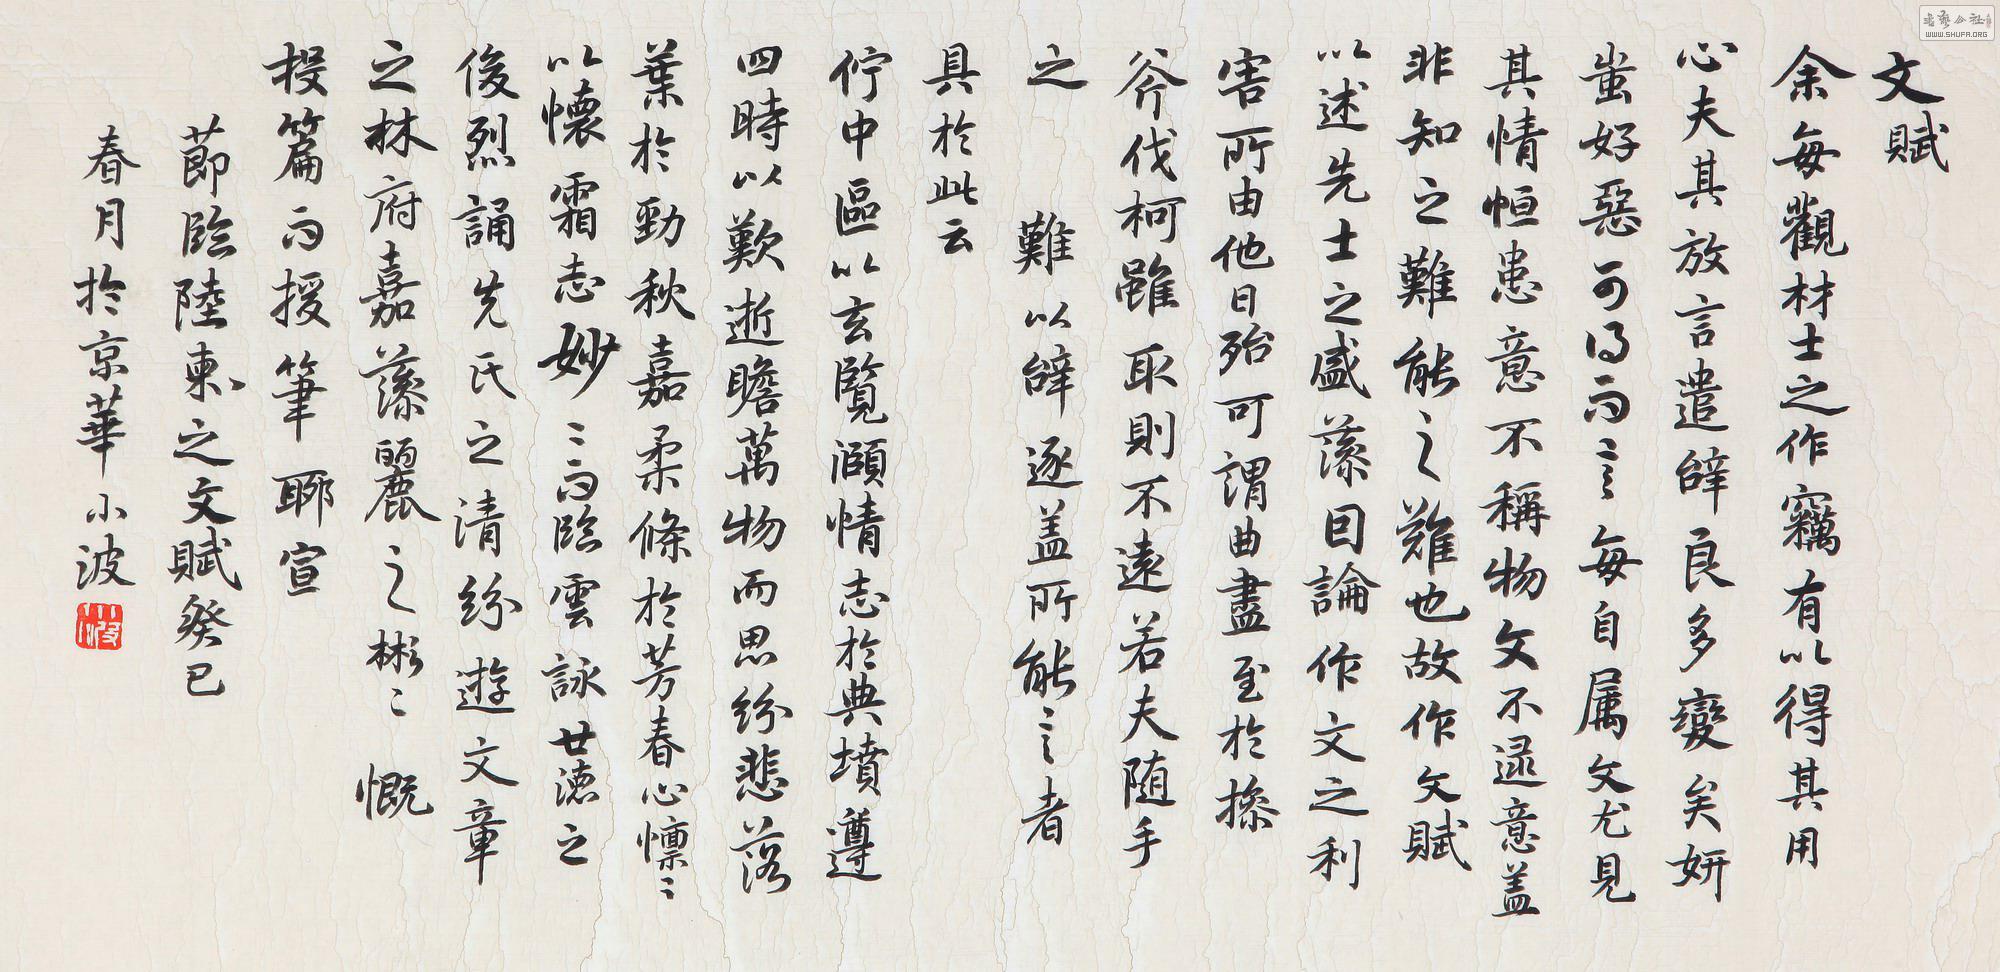 文賦
余每觀材士之作竊有以得其用
心夫其放言遣辭良多變矣妍
蚩好惡可得而言每自属文尤見
其情恒患意不稱物文不逮意盖
非知之難能之難也故作文賦
以述先士之盛藻因論作文之利
害所由他日殆可謂曲盡至於操
斧伐柯雖取則不遠若夫随手
之 難以辭逐盖所能言者
具於此云
佇中區以玄覽頤情志於典墳遵
四時以歎逝瞻萬物而思紛悲落
葉於勁秋嘉柔條於芳春心懍〻
以懷霜志妙〻而臨雲詠世德之
俊烈誦先民之清紛遊文章
之林府嘉藻麗之彬〻慨
投篇而援筆聊宣
節臨陸柬之文賦癸巳
春月於京華小波
小波
書藝公社
WWW.SHUFA.ORG